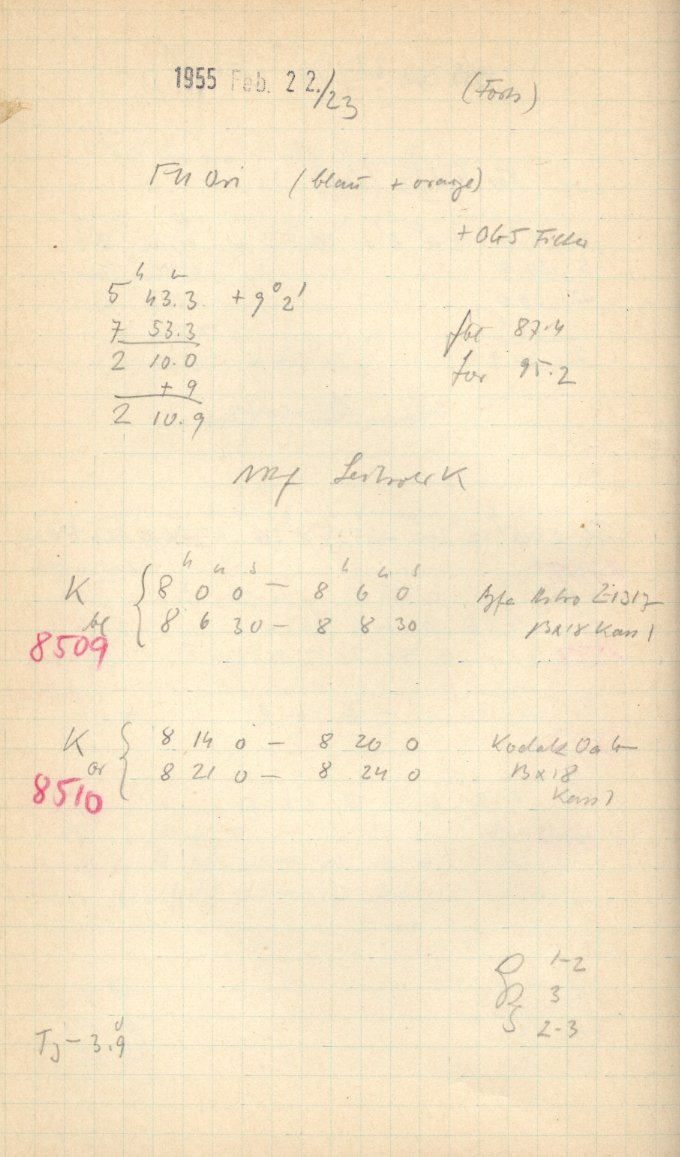 1955 Feb. 22./23 (Forts)
FU Ori (blau + orange)
+ OG5 Filter
5 h 43.3 m + 9° 2'
7 53.3
2 10.0
+ 9
2 10.9
fbl 87.4
for 95.2
K bl 8 h 0 m 0 s – 8 h 6 m 0 s Agfa Astro Z1317
8 6 30 – 8 8 30 9x18 Kass 1
8509
K or 8 14 0 – 8 20 0 Kodak Oa
8 21 0 – 8 24 0 9x18
8510 Kass 1
1-2
3
S 2-3
T – 3.9